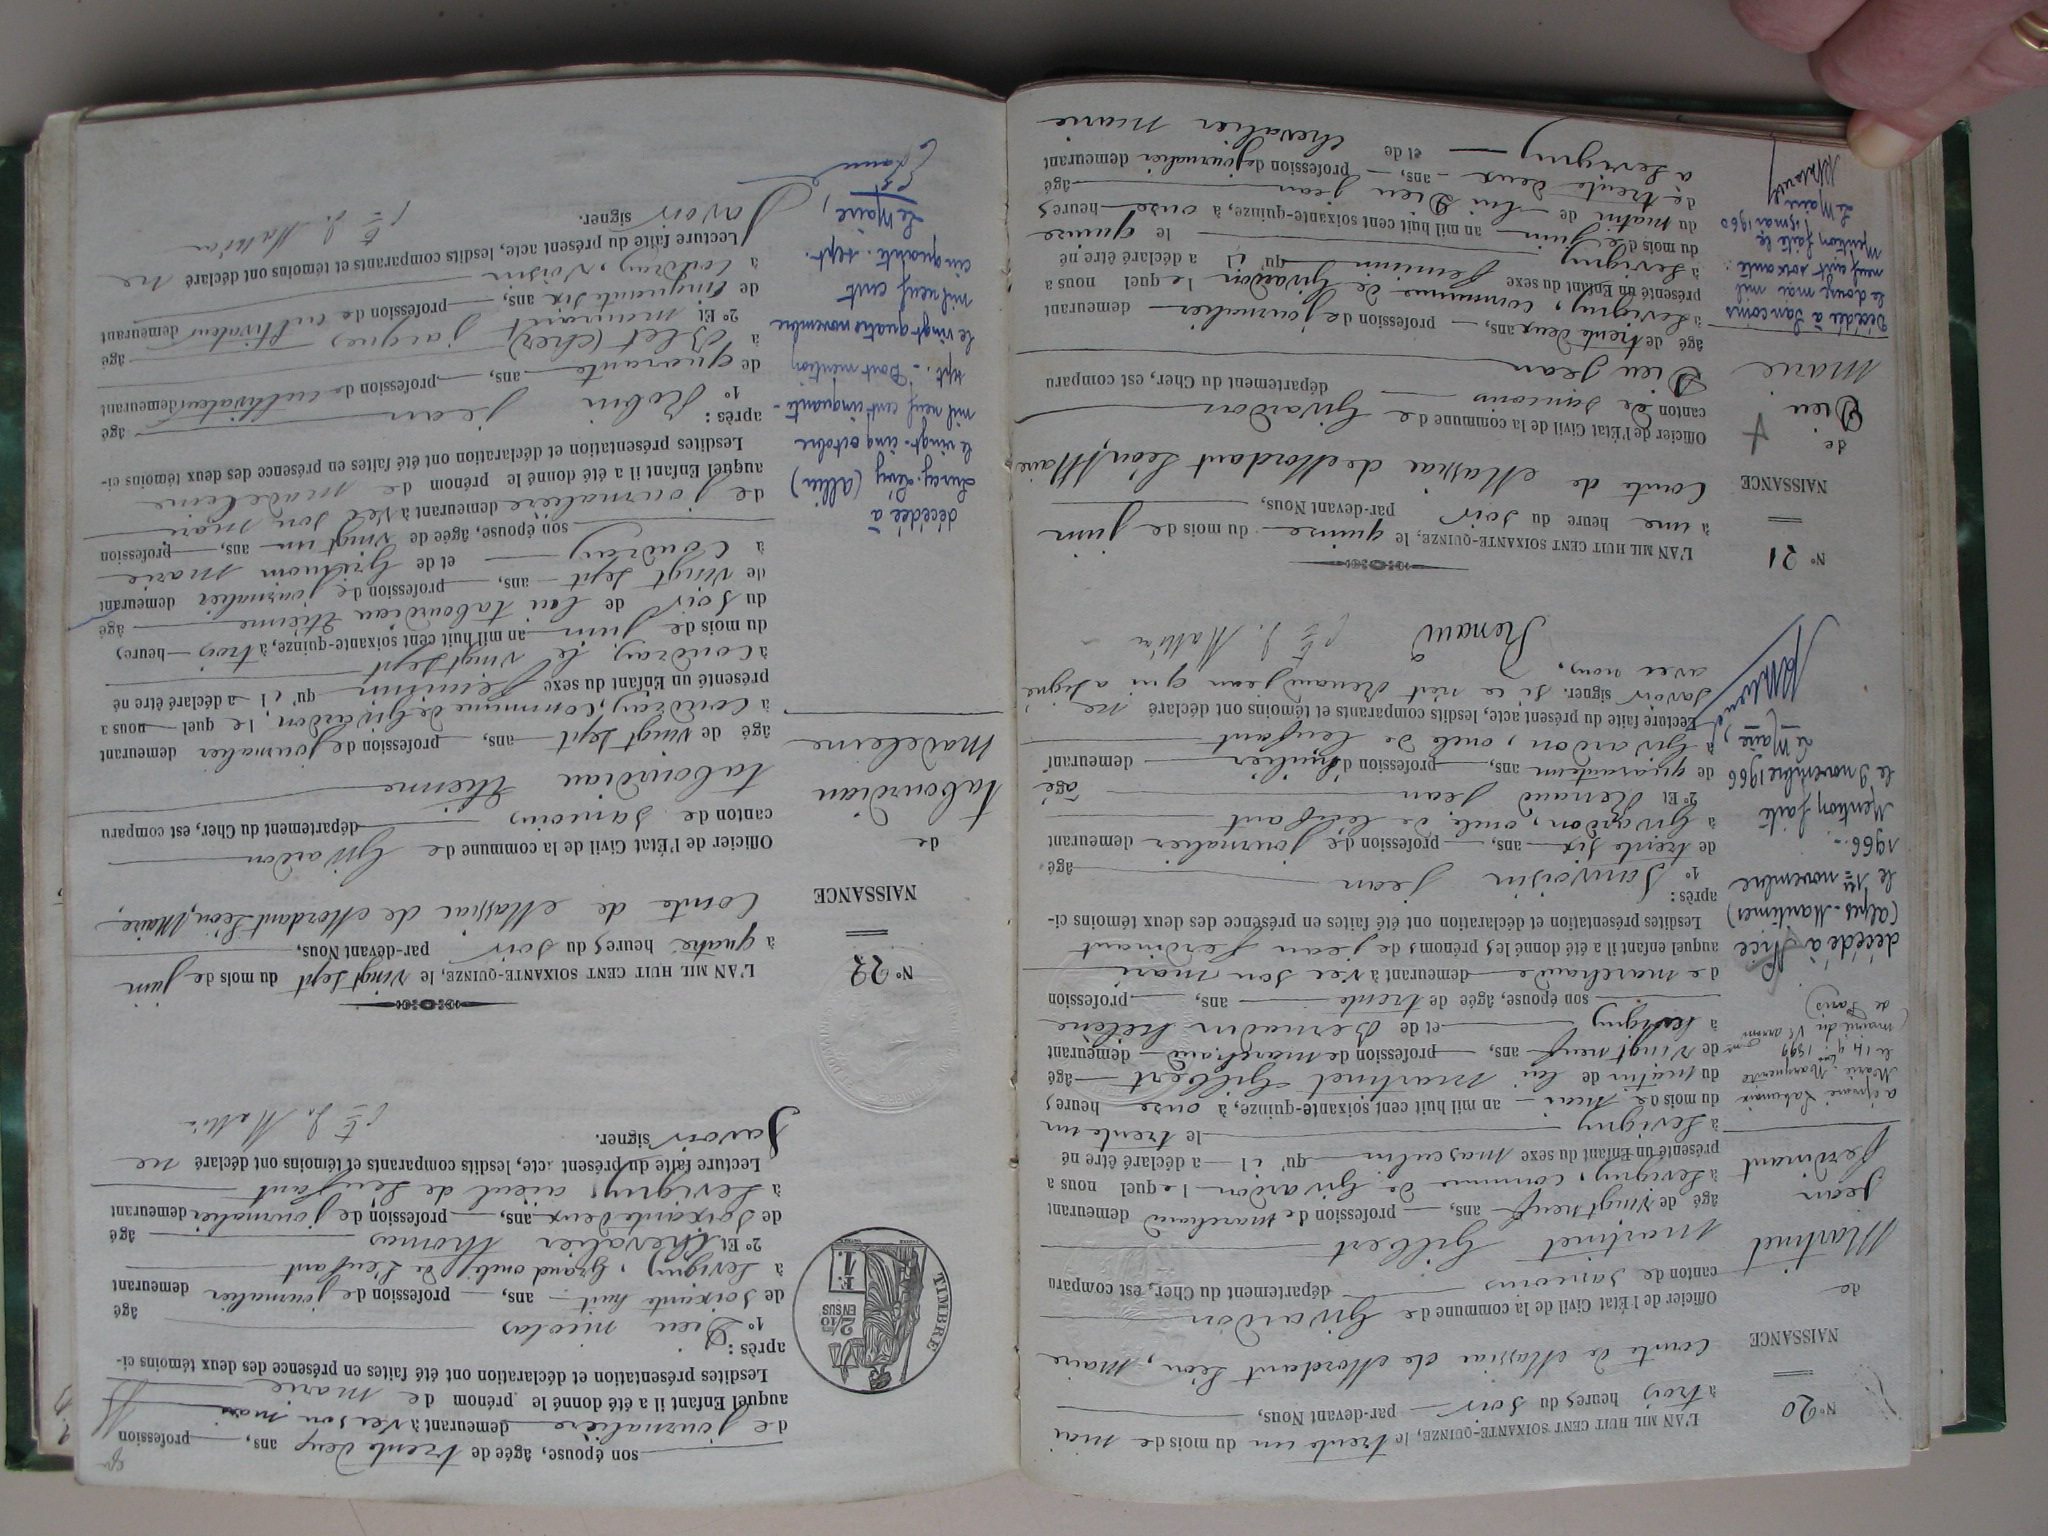 N° 20
NAISSANCE
de
Martinet
Jean
Ferdinant
a épousé
Marie, Marguerite
le 14 1899
(mairie du VI arrond
de Paris)
décédé à Nice
(Alpes-Maritimes)
le 1er novembre
1966.-
Mention faite
le 9 novembre 1966
Le Maire,
L'AN MIL HUIT CENT SOIXANTE-QUINZE, le trente un du mois de mai
à trois heures du soir par-devant Nous,
Comte de Massiac de Mordant Léon, Maire
Officier de l'État Civil de la commune de Givardon
canton de Sancoins département du Cher, est comparu
martinet Gilbert
âgé de vingt neuf ans, profession de marchand demeurant
à Levigny, commune de Givardon lequel nous a
présenté un Enfant du sexe masculin qu'il a déclaré être né
à Levigny le trente un
du mois de mai an mil huit cent soixante-quinze, à onze heures
du matin de lui martinet Gilbert âgé
de vingt neuf ans, profession de marchand demeurant
à Levigny et de Bernadin hélène
son épouse, âgée de trente ans, profession
de marchande demeurant avec son mari
auquel enfant il a été donné les prénoms de jean ferdinant
Lesdites présentation et déclaration ont été faites en présence des deux témoins ci-
après :
1° Sauvoisin jean âgé
de trente six ans, profession de journalier demeurant
à Givardon, oncle de l'enfant
2° Et Renaud Jean âgé
de quarante ans, profession d'huilier demeurant
à Givardon, oncle de l'enfant
Lecture faite du présent acte, lesdits comparants et témoins ont déclaré ne
savoir signer. si ce n'est Renaud jean qui a signé
avec nous.
Renaud
N° 21
NAISSANCE
de
Dieu
Marie
Décédée à Sancoins
le douze mai mil
neuf cent soixante.
Mention faite le
mai 1960
Le Maire
L'AN MIL HUIT CENT SOIXANTE-QUINZE, le quinze du mois de juin
à une heure du soir par-devant Nous,
Comte de Massiac de Mordant Léon, Maire
Officier de l'État Civil de la commune de Givardon
canton de Sancoins département du Cher, est comparu
Dieu Jean
âgé de trente deux ans, profession de journalier demeurant
à Levigny, commune de Givardon lequel nous a
présenté un Enfant du sexe féminin qu'il a déclaré être né
à Levigny le quinze
du mois de juin an mil huit cent soixante-quinze, à onze heures
du matin de lui Dieu jean âgé
de trente deux ans, profession de journalier demeurant
à Levigny et de chevalier marie
son épouse, âgée de trente deux ans, profession
de journalière demeurant avec son mari
auquel Enfant il a été donné le prénom de marie
Lesdites présentation et déclaration ont été faites en présence des deux témoins ci-
après :
1° Dieu nicolas âgé
de soixante huit ans, profession de journalier demeurant
à Levigny, Grand oncle de l'enfant
2° Et chevalier thomas âgé
de soixante deux ans, profession de journalier demeurant
à Levigny, aïeul de l'enfant
Lecture faite du présent acte, lesdits comparants et témoins ont déclaré ne
savoir signer.
TIMBRE
2/10
EN SUS
F. 1.
N° 22
NAISSANCE
de
tabourdiau
madeleine
décédée à
Lurcy-Lévy (Allier)
le vingt-cinq octobre
mil neuf cent cinquante-
sept.- Dont mention
le vingt-quatre novembre
mil neuf cent
cinquante-sept.
Le Maire,
L'AN MIL HUIT CENT SOIXANTE-QUINZE, le vingt sept du mois de juin
à quatre heures du soir par-devant Nous,
Comte de Massiac de Mordant Léon, Maire,
Officier de l'État Civil de la commune de Givardon
canton de Sancoins département du Cher, est comparu
tabourdiau Etienne
âgé de vingt sept ans, profession de journalier demeurant
à Coudray, commune de Givardon, lequel nous a
présenté un Enfant du sexe féminin qu'il a déclaré être né
à Coudray, le vingt sept
du mois de juin an mil huit cent soixante-quinze, à trois heures
du soir de lui tabourdiau Etienne âgé
de vingt sept ans, profession de journalier demeurant
à Coudray et de marie
son épouse, âgée de vingt un ans, profession
de journalière demeurant avec son mari
auquel Enfant il a été donné le prénom de madeleine
Lesdites présentation et déclaration ont été faites en présence des deux témoins ci-
après :
1° Robin jean âgé
de quarante ans, profession de cultivateur demeurant
à Blet (cher)
2° Et jacques âgé
de cinquante six ans, profession de cultivateur demeurant
à Coudray, voisin
Lecture faite du présent acte, lesdits comparants et témoins ont déclaré ne
savoir signer.